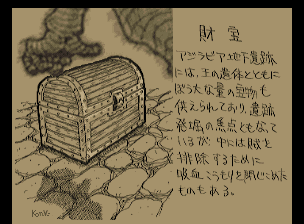 財宝
アジラビア地下遺跡
には、王の遺体とともに
ぼう大な量の宝物も
供えられており、遺跡
発掘の焦点ともなって
いるが、中には賊を
排除するために
吸血こうもりを封じこめた
ものもある。